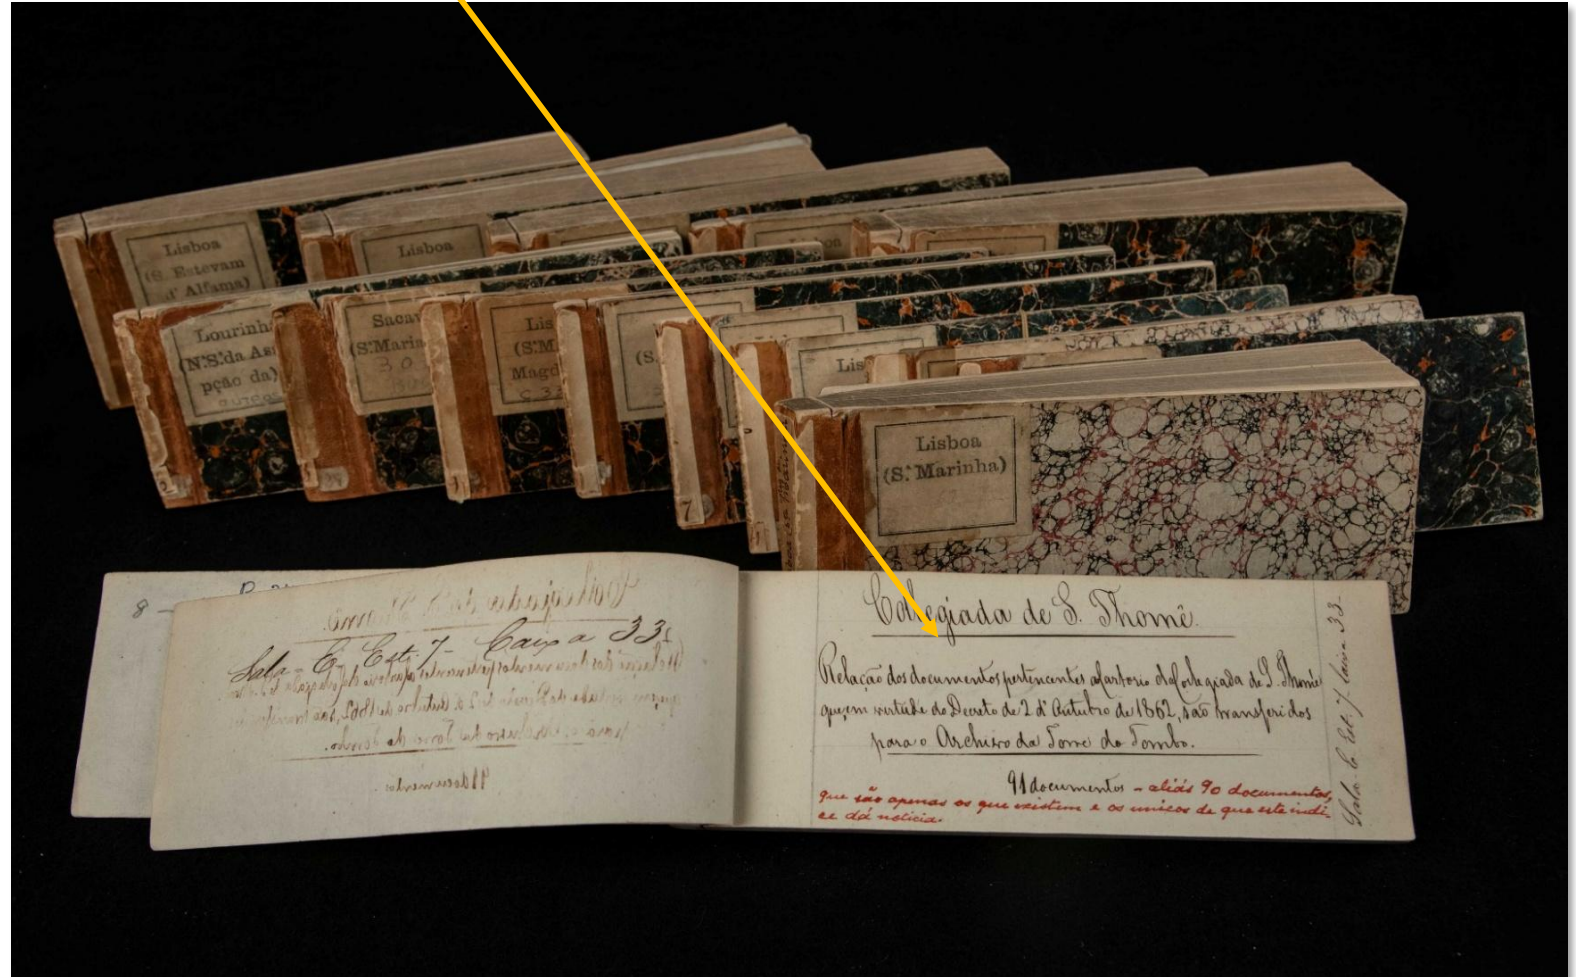 Lisboa
(S. Estevam
d' Alfama)
Lisboa
Lourinh
(N.S. da As
pção da)
Sacav
(S. Marin
30
Lis
(S. M
Magd
(S.
Lis
7
Lisboa
(S.ta Marinha)
8 —
Sala - C Est. 7 - Caixa 33
Collegiada de S. Thomé.
Relação dos documentos pertencentes a Cartorio da Collegiada de S. Thomé
que, em virtude do Decreto de 2 d'Outubro de 1862, são transferidos
para o Archivo da Torre do Tombo.
91 documentos - aliás 90 documentos,
que são apenas os que existem e os unicos de que este indi-
ce dá noticia.
Sala C. Est. 7. Caixa 33-